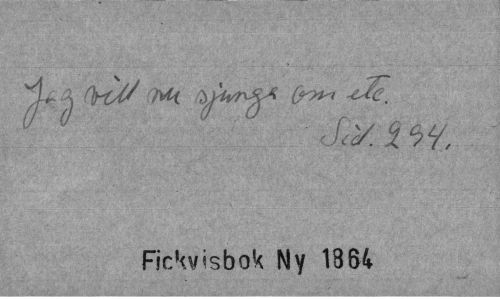 Jag vill nu sjunga om etc.
Sid. 294.
Fickvisbok Ny 1864